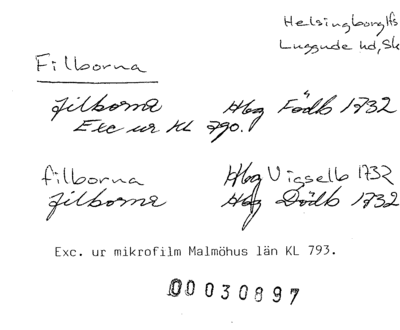 Helsingborg lfs
Luggude hd, Sk
Filborna
filborna Hbg Födb 1732
Exc ur KL 790.
filborna Hbg Vigselb 1732
filborna Hbg Dödb 1732
Exc. ur mikrofilm Malmöhus län KL 793.
00030897